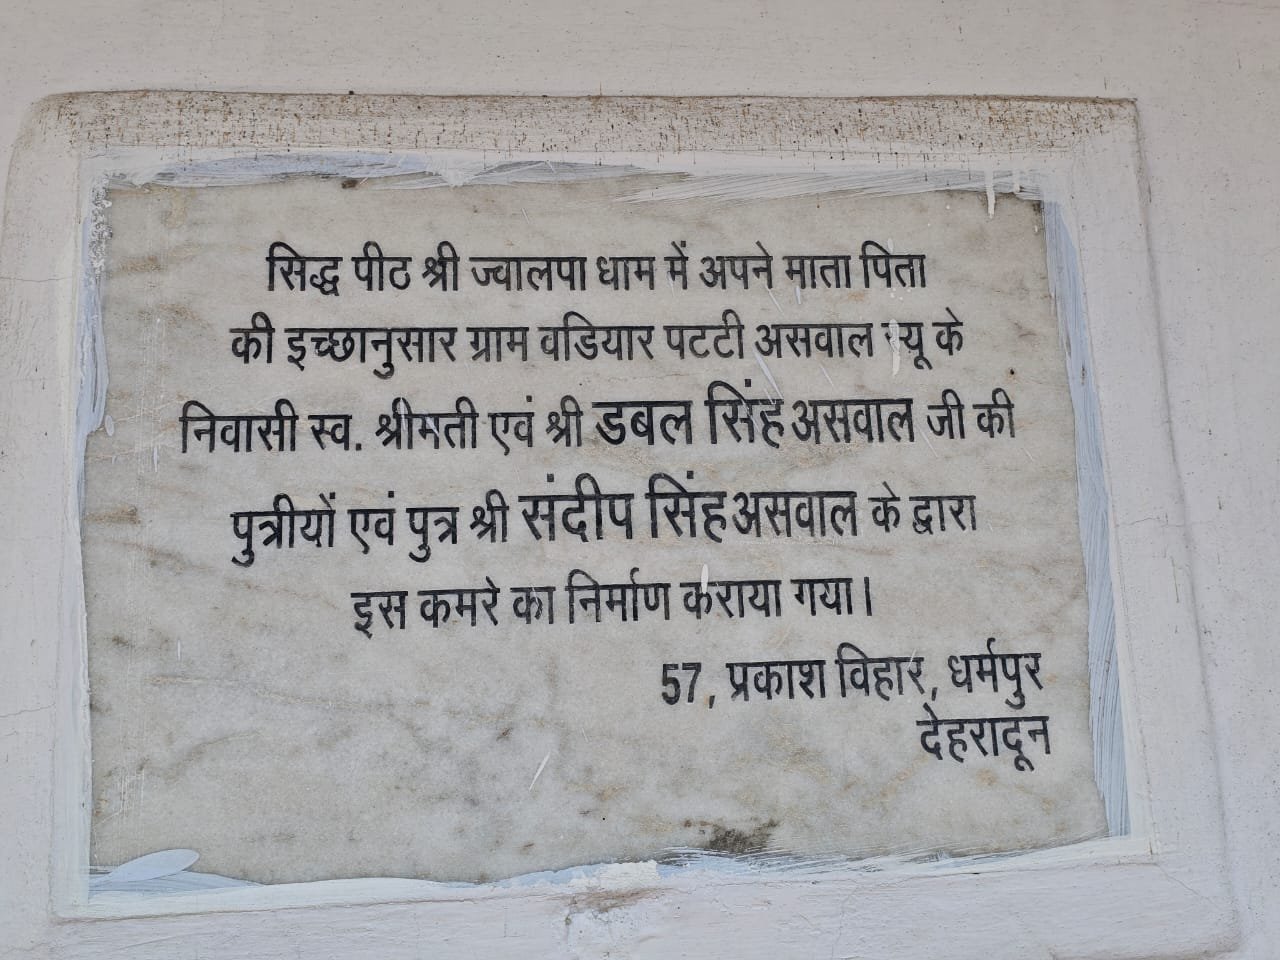 सिद्ध पीठ श्री ज्वालपा धाम में अपने माता पिता
की इच्छानुसार ग्राम वडियार पटटी असवाल के
निवासी स्व. श्रीमती एवं श्री डबल सिंह असवाल जी की
पुत्रीयों एवं पुत्र श्री संदीप सिंह असवाल के द्वारा
इस कमरे का निर्माण कराया गया।
57, प्रकाश विहार, धर्मपुर
देहरादून